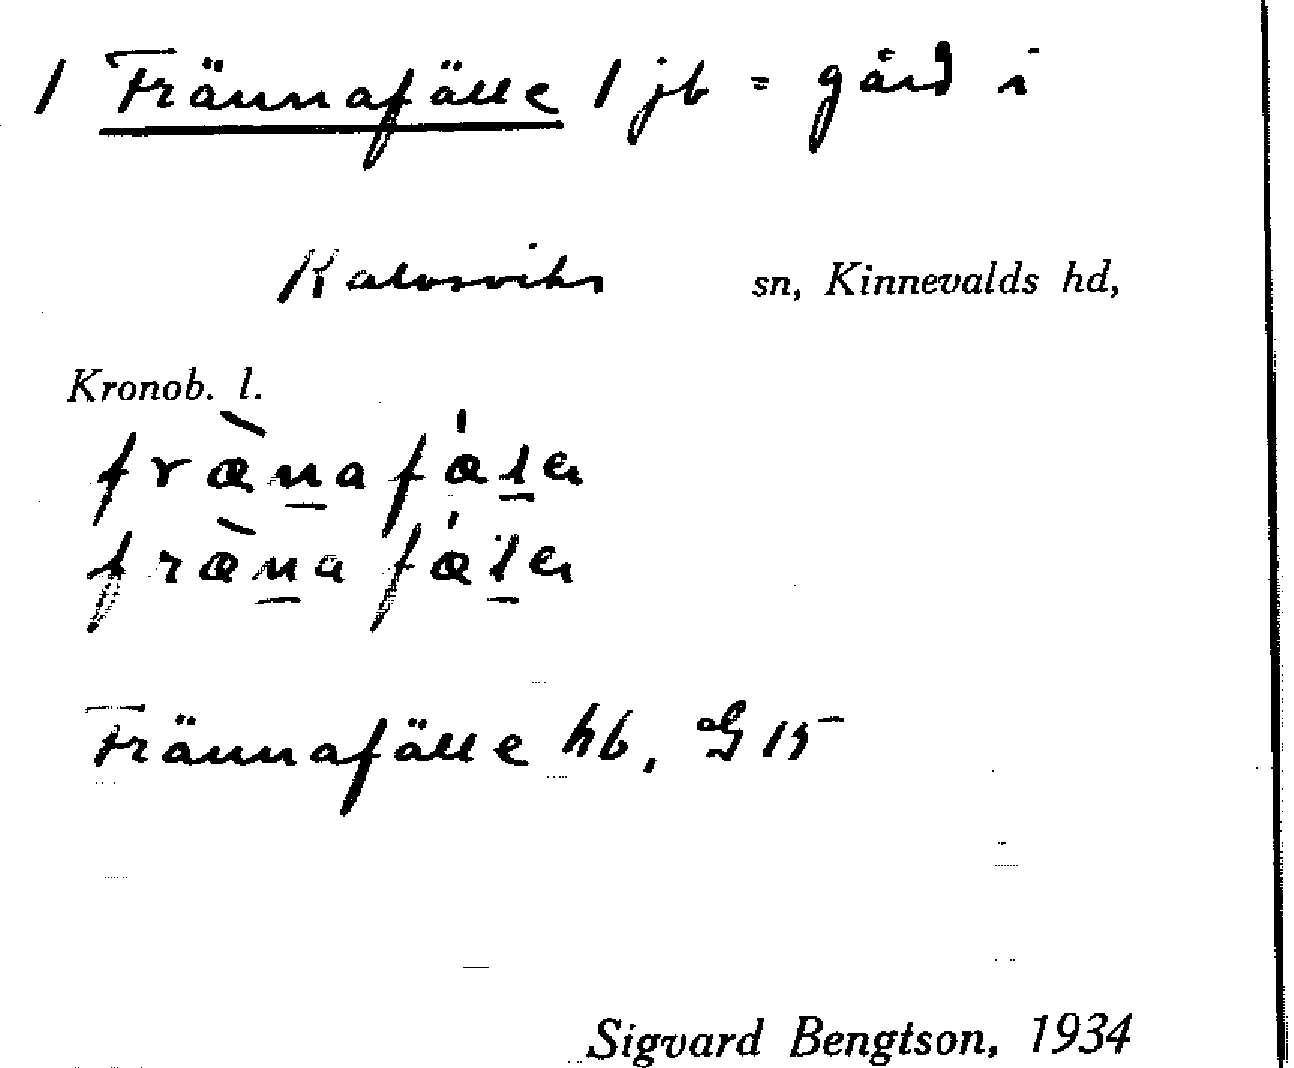 / Frännafälle / jb = gård i
Kalvsviks sn, Kinnevalds hd,
Kronob. l.
fræ̀n̲afǽl̲ə
fræ̀n̲afǽl̲ə
Frännafälle hb, G 15
Sigvard Bengtson, 1934